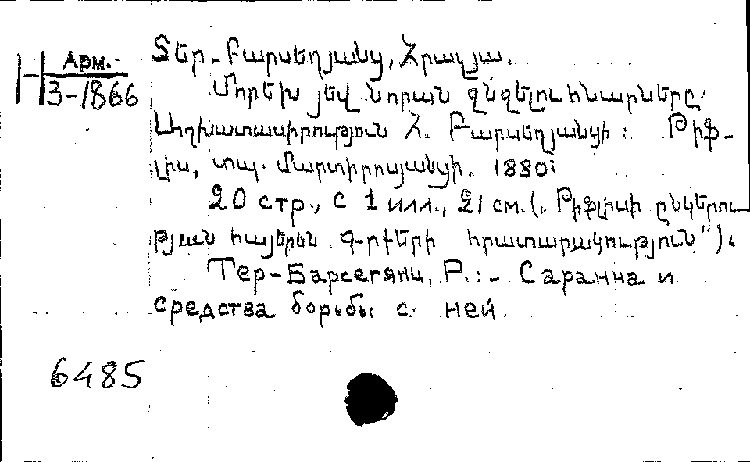 Арм.
Н 3-1866
Տեր-Բարսեղյանց, Հրաչյա.
Մորեխ յեվ նորան ջնջելու հնարները.
Աշխատասիրություն Հ. Բարսեղյանցի: Թիֆ-
լիս, տպ. Մարտիրոսյանցի. 1880:
20 стр., с 1 илл., 21 см. (. Թիֆլիսի ընկերու
թյան հայերեն գրքերի հրատարակության").
Тер-Барсегянц, Р.:- Саранча и
средства борьбы с ней
6485